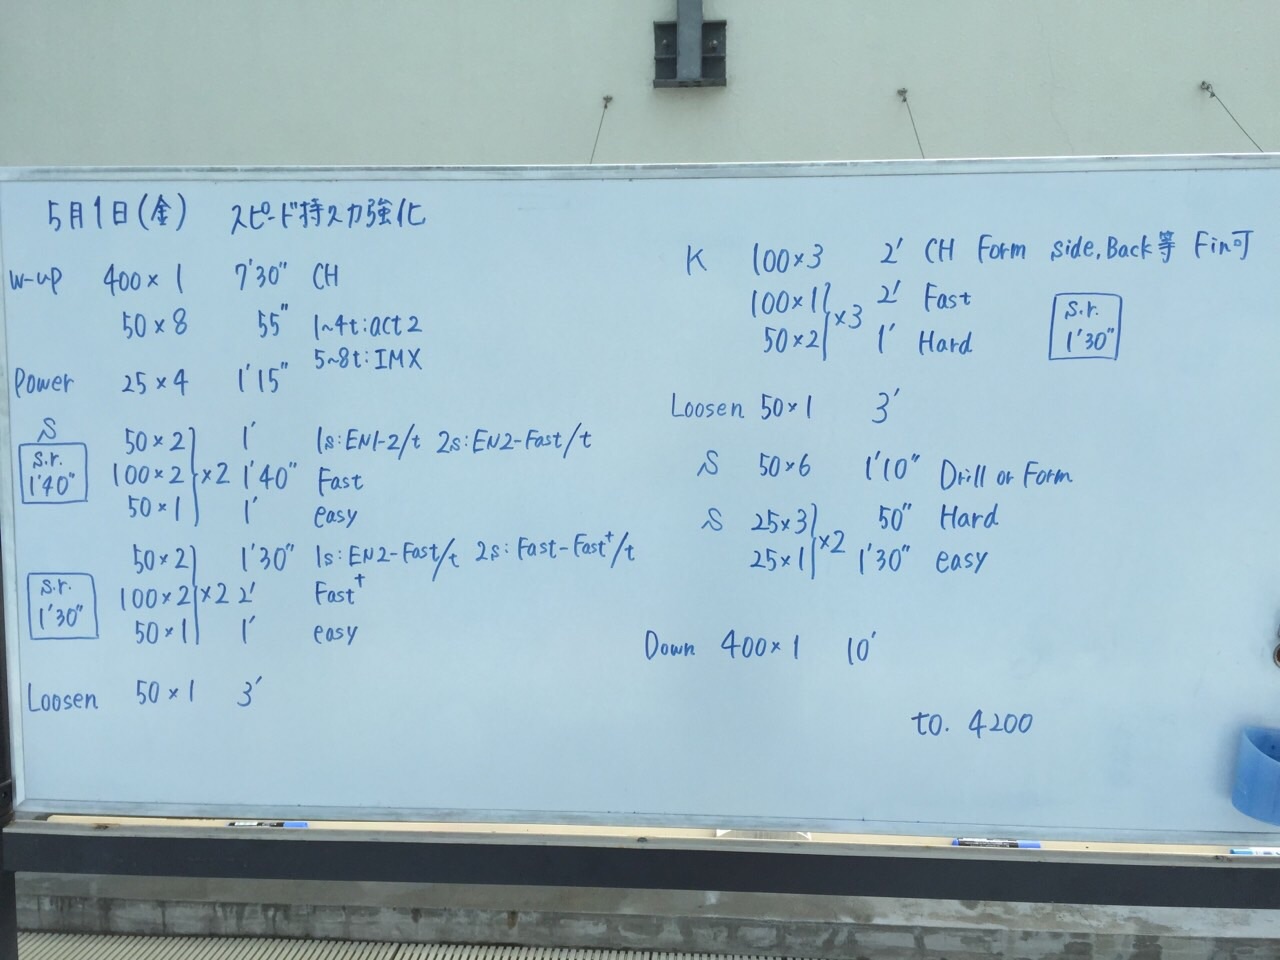 5月1日(金) スピード持久力強化
W-up 400×1 7'30" CH
50×8 55" 1~4t:act2
5~8t:IMX
Power 25×4 1'15"
S
50×2 1' 1s:EN1-2/t 2s:EN2-Fast/t
s.r. 1'40" 100×2 ×2 1'40" Fast
50×1 1' easy
50×2 1'30" 1s:EN2-Fast/t 2s:Fast-Fast⁺/t
s.r. 1'30" 100×2 ×2 2' Fast⁺
50×1 1' easy
Loosen 50×1 3'
K 100×3 2' CH Form side,Back等 Fin可
100×1 ×3 2' Fast
50×2 1' Hard
s.r. 1'30"
Loosen 50×1 3'
S 50×6 1'10" Drill or Form
S 25×3 ×2 50" Hard
25×1 1'30" easy
Down 400×1 10'
to. 4200